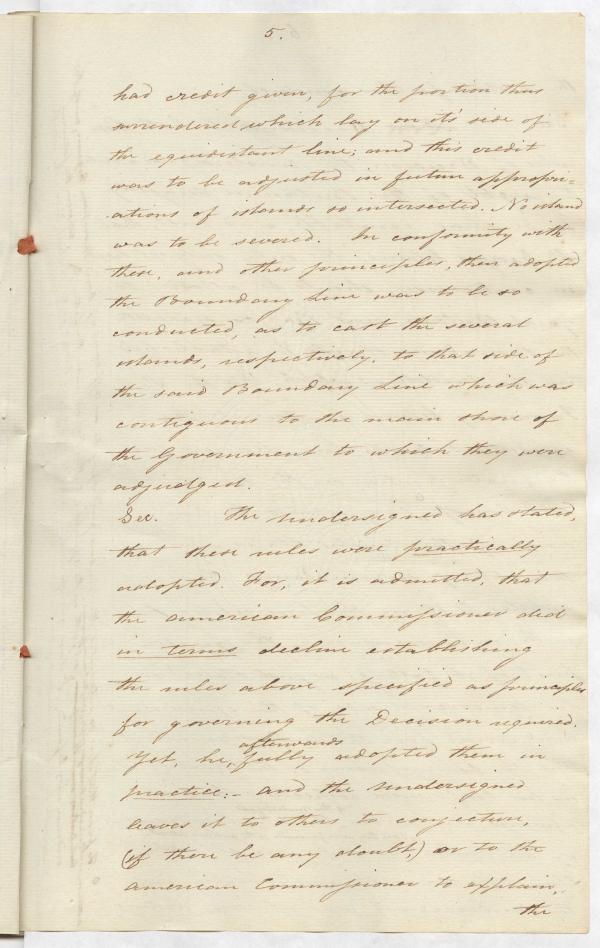 5.
had credit given, for the portion thus
surrendered which lay on it's side of
the equidistant line; and this credit
was to be adjusted in future appropri-
-ations of islands so intersected. No island
was to be severed. In conformity with
these, and other principles, then adopted
the Boundary Line was to be so
conducted, as to cast the several
islands, respectively, to that side of
the said Boundary Line which was
contiguous to the main shore of
the Government to which they were
adjudged.
Sec. The undersigned has stated,
that these rules were practically
adopted. For, it is admitted, that
the American Commissioner did
in terms decline establishing
the rules above specified as principles
for governing the Decision required.
Yet, he, afterwards fully adopted them in
practice:- and the undersigned
leaves it to others to conjecture,
(if there be any doubt,) or to the
American Commissioner to explain,
the